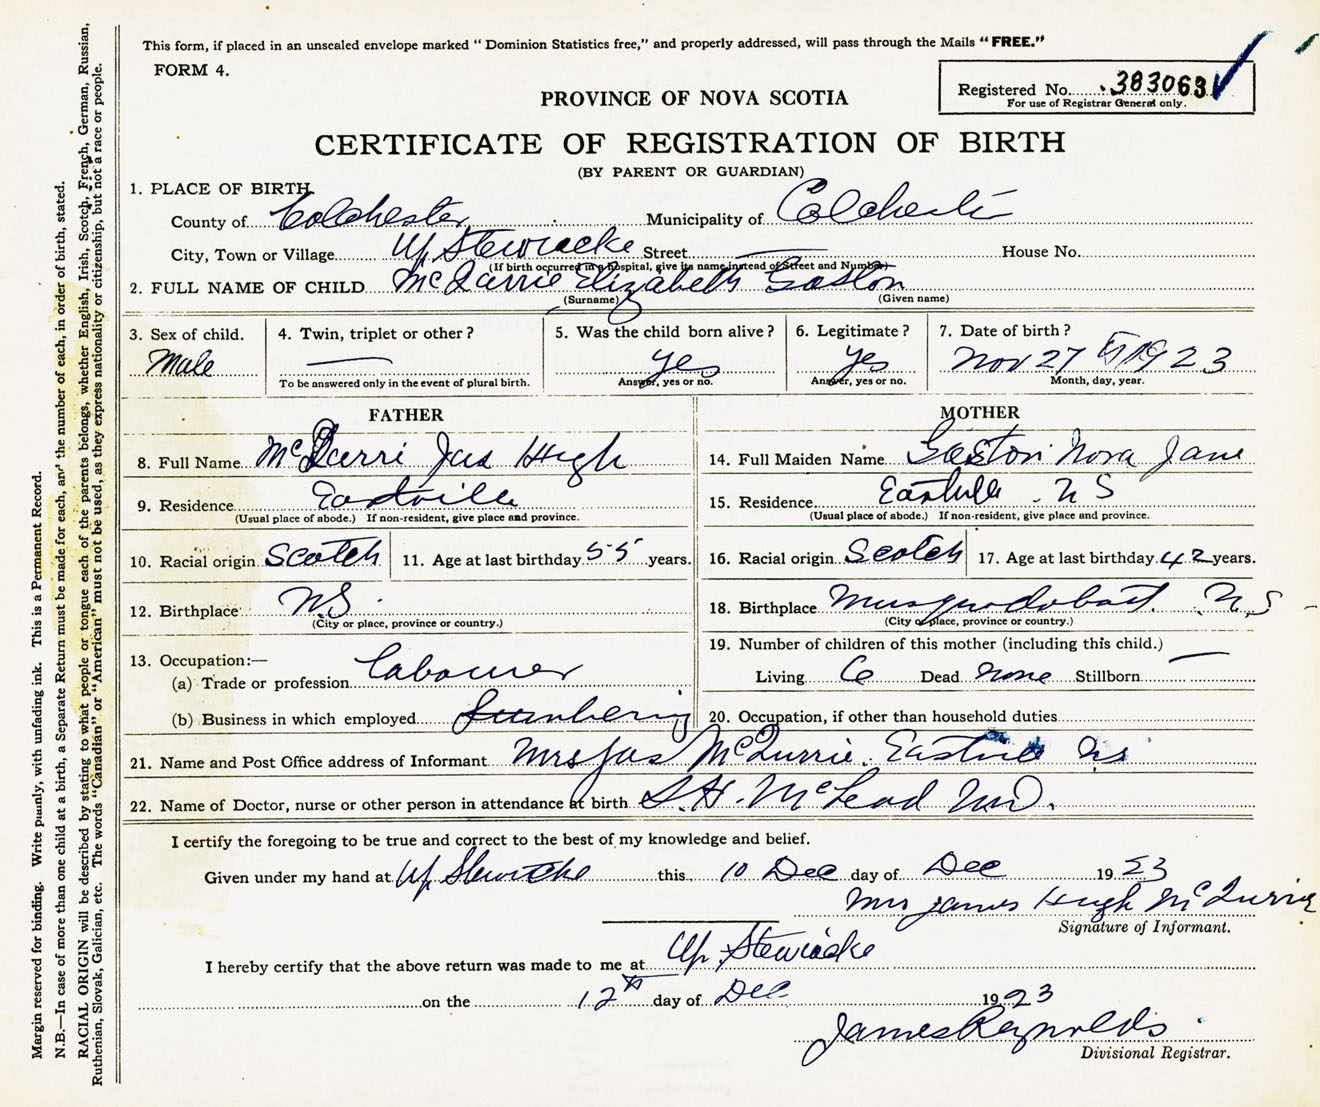 This form, if placed in an unsealed envelope marked "Dominion Statistics free," and properly addressed, will pass through the Mails "FREE."
FORM 4.
Registered No. 383063
For use of Registrar General only.
PROVINCE OF NOVA SCOTIA
CERTIFICATE OF REGISTRATION OF BIRTH
(BY PARENT OR GUARDIAN)
1. PLACE OF BIRTH
County of Colchester Municipality of Colchester
City, Town or Village Up Stewiacke Street House No.
(If birth occurred in a hospital, give its name instead of Street and Number)
2. FULL NAME OF CHILD Elizabeth Gaston
(Surname) (Given name)
3. Sex of child. 4. Twin, triplet or other? 5. Was the child born alive? 6. Legitimate? 7. Date of birth?
Male yes yes Nov 27 1923
To be answered only in the event of plural birth. Answer, yes or no. Answer, yes or no. Month, day, year.
FATHER MOTHER
8. Full Name Jas Hugh 14. Full Maiden Name Gaston Nora Jane
9. Residence Eastville 15. Residence Eastville N S
(Usual place of abode.) If non-resident, give place and province. (Usual place of abode.) If non-resident, give place and province.
10. Racial origin Scotch 11. Age at last birthday 55 years. 16. Racial origin Scotch 17. Age at last birthday 42 years.
12. Birthplace N.S. 18. Birthplace Musquodoboit N.S
(City or place, province or country.) (City or place, province or country.)
13. Occupation:— 19. Number of children of this mother (including this child.)
(a) Trade or profession Labourer Living 6 Dead none Stillborn
(b) Business in which employed Lumbering 20. Occupation, if other than household duties
21. Name and Post Office address of Informant Mrs Jas McQurrie. Eastville NS
22. Name of Doctor, nurse or other person in attendance at birth S.H. McLeod M.D.
I certify the foregoing to be true and correct to the best of my knowledge and belief.
Given under my hand at Up. Stewiacke this 10 Dec day of Dec 1923
Mrs James Hugh McQurrie
Signature of Informant.
I hereby certify that the above return was made to me at Up. Stewiacke
on the 12th day of Dec 1923
James Reynolds
Divisional Registrar.
Margin reserved for binding. Write plainly, with unfading ink. This is a Permanent Record.
N.B.—In case of more than one child at a birth, a Separate Return must be made for each, and the number of each, in order of birth, stated.
RACIAL ORIGIN will be described by stating to what people or tongue each of the parents belongs, whether English, Irish, Scotch, French, German, Russian,
Ruthenian, Slovak, Galician, etc. The words "Canadian" or "American" must not be used, as they express nationality or citizenship, but not a race or people.